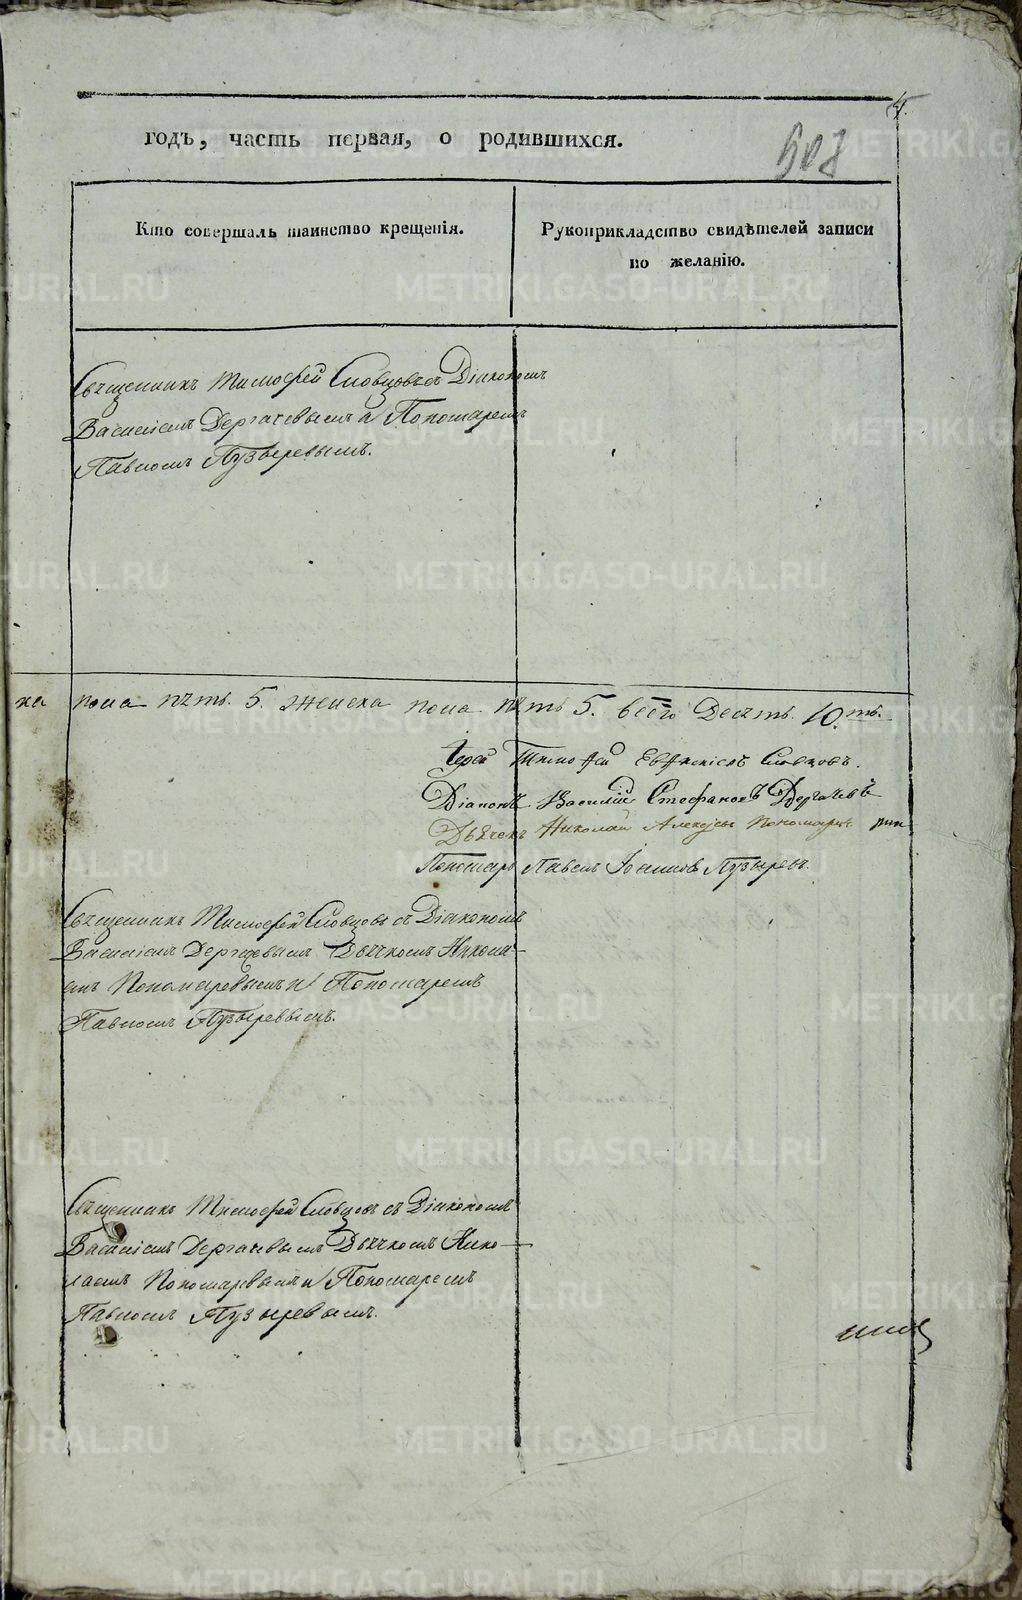 4.
508
годъ, часть первая, о родившихся.
Кто совершалъ таинство крещенія.
Рукоприкладство свидѣтелей записи
по желанію.
Священникъ Тимофей Словцовъ съ Діакономъ
Василіемъ Дергачевымъ и Пономаремъ
Павломъ Пузыревымъ.
ка пола пять. 5. женска пола пять 5. всего Десять. 10.ть.
Іерей Тимофей Словцовъ.
Діаконъ Василій Стефановъ Дергачевъ
Дьячекъ Николай Алексѣевъ Пономаревъ
Пономарь Павелъ Іоанновъ Пузыревъ.
Священникъ Тимофей Словцовъ съ Діакономъ
Василіемъ Дергачевымъ Дьячкомъ Никола-
емъ Пономаревымъ и Пономаремъ
Павломъ Пузыревымъ.
Священникъ Тимофей Словцовъ съ Діакономъ
Василіемъ Дергачевымъ Дьячкомъ Нико-
лаемъ Пономаревымъ и Пономаремъ
Павломъ Пузыревымъ.
METRIKI.GASO-URAL.RU